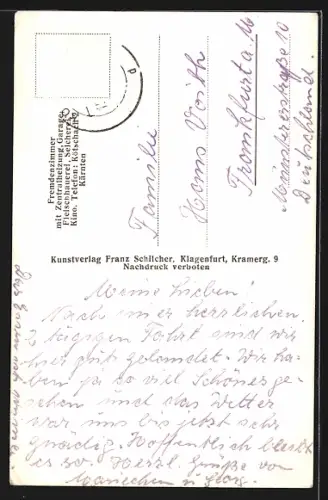 Fremdenzimmer
mit Zentralheizung, Garage,
Fleischhauerei, Selcherei,
Kino. Telefon: Kötschach
Kärnten
Familie
Hans Voith
Frankfurt a. M
Münsterstraße 10
Deutschland.
Kunstverlag Franz Schilcher, Klagenfurt, Kramerg. 9
Nachdruck verboten
Meine Lieben!
Nach einer herrlichen
2 tägigen Fahrt sind wir
hier gut gelandet. Wir ha-
ben ja so viel Schönes ge-
sehen und das Wetter
war uns bis jetzt sehr
gnädig. Hoffentlich bleibt
es so. Herzl. Grüße von
u.